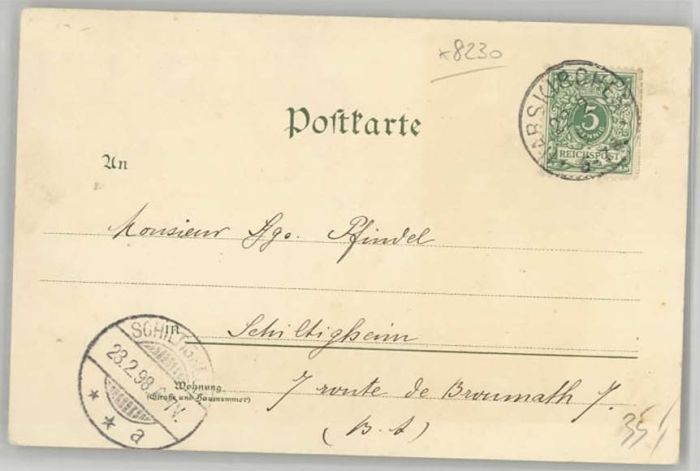 x8230
ARSKIRCHEN
5
REICHSPOST
5-7N
Postkarte
An
Monsieur Pfindel
in Schiltigheim
SCHILTIGH
28.2.98. 6-7N.
* * a
Wohnung
(Straße und Hausnummer)
7 route de Broumath 7.
(B. A)
35